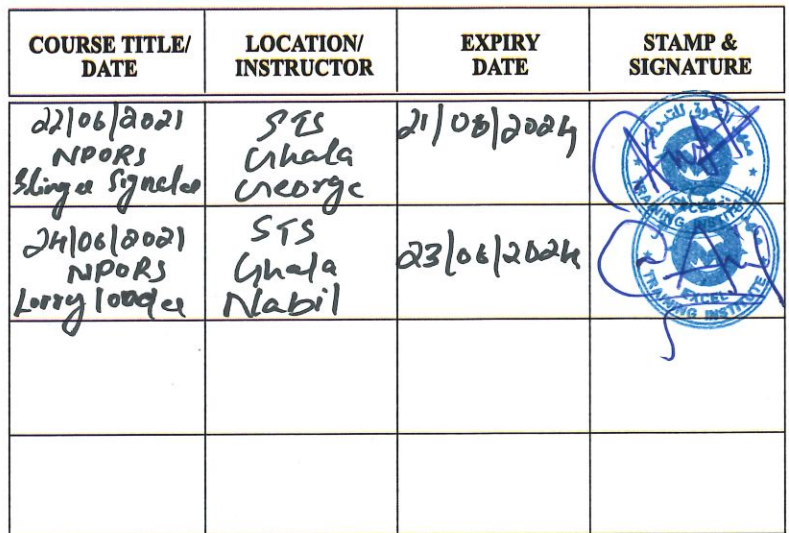 COURSE TITLE/
DATE
LOCATION/
INSTRUCTOR
EXPIRY
DATE
STAMP &
SIGNATURE
22/06/2021
NPORS
Slinger Signaler
STS
Ghala
George
21/06/2024
معهد التفوق للتدريب
EXCEL
TRAINING INSTITUTE
24/06/2021
NPORS
Lorry loader
STS
Ghala
Nabil
23/06/2024
EXCEL
TRAINING INSTITUTE